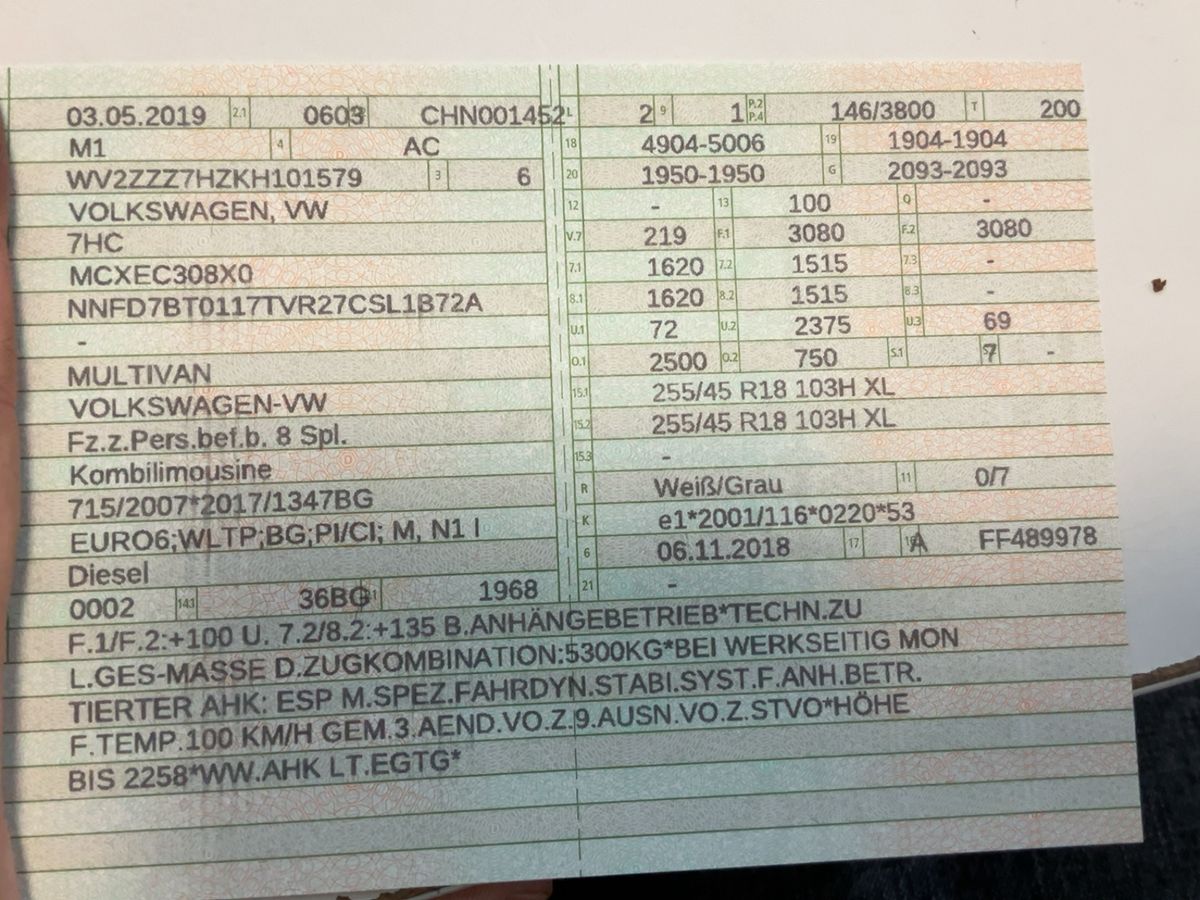 03.05.2019 2.1 0603 CHN001452 L 2 9 1 P.2 P.4 146/3800 T 200
M1 4 AC 18 4904-5006 19 1904-1904
WV2ZZZ7HZKH101579 3 6 20 1950-1950 G 2093-2093
VOLKSWAGEN, VW 12 - 13 100 Q -
7HC V.7 219 F.1 3080 F.2 3080
MCXEC308X0 7.1 1620 7.2 1515 7.3 -
NNFD7BT0117TVR27CSL1B72A 8.1 1620 8.2 1515 8.3 -
- U.1 72 U.2 2375 U.3 69
MULTIVAN O.1 2500 O.2 750 S.1 7 -
VOLKSWAGEN-VW 15.1 255/45 R18 103H XL
Fz.z.Pers.bef.b. 8 Spl. 15.2 255/45 R18 103H XL
Kombilimousine 15.3 -
715/2007*2017/1347BG R Weiß/Grau 11 0/7
EURO6;WLTP;BG;PI/CI; M, N1 I K e1*2001/116*0220*53
Diesel 6 06.11.2018 17 A FF489978
0002 14.1 36BG 1968 21 -
F.1/F.2:+100 U. 7.2/8.2:+135 B.ANHÄNGEBETRIEB*TECHN.ZU
L.GES-MASSE D.ZUGKOMBINATION:5300KG*BEI WERKSEITIG MON
TIERTER AHK: ESP M.SPEZ.FAHRDYN.STABI.SYST.F.ANH.BETR.
F.TEMP.100 KM/H GEM.3.AEND.VO.Z.9.AUSN.VO.Z.STVO*HÖHE
BIS 2258*WW.AHK LT.EGTG*